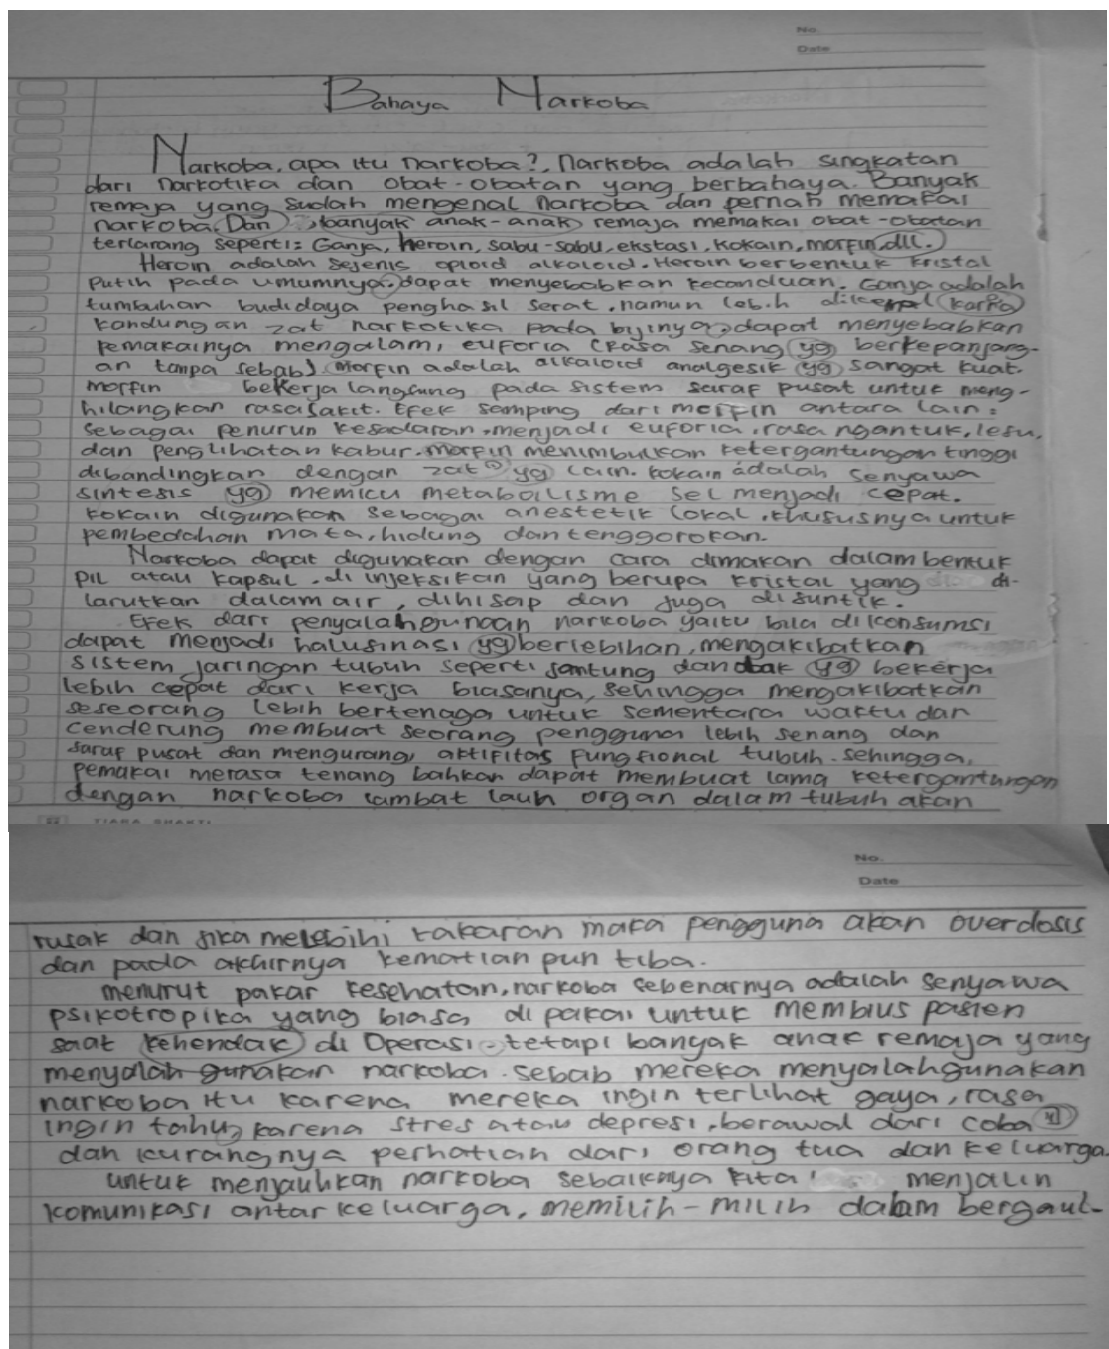 No.
Date
Bahaya Narkoba
Narkoba, apa itu narkoba?, Narkoba adalah singkatan
dari narkotika dan obat-obatan yang berbahaya. Banyak
remaja yang sudah mengenal narkoba dan pernah memakai
narkoba. Dan banyak anak-anak remaja memakai obat-obatan
terlarang seperti: Ganja, heroin, sabu-sabu, ekstasi, kokain, morfin, dll.
Heroin adalah sejenis opioid alkaloid. Heroin berbentuk kristal
Putih pada umumnya. dapat menyebabkan kecanduan. Ganja adalah
tumbuhan budidaya penghasil serat, namun lebih dikenal karna
kandungan zat narkotika pada bijinya, dapat menyebabkan
pemakainya mengalami euforia (rasa senang yg berkepanjang-
an tanpa sebab). Morfin adalah alkaloid analgesik yg sangat kuat.
morfin bekerja langsung pada sistem saraf pusat untuk meng-
hilangkan rasa sakit. Efek samping dari morfin antara lain:
sebagai penurun kesadaran, menjadi euforia, rasa ngantuk, lesu,
dan penglihatan kabur. morfin menimbulkan ketergantungan tinggi
dibandingkan dengan zat² yg lain. kokain adalah senyawa
sintesis yg memicu metabolisme sel menjadi cepat.
kokain digunakan sebagai anestetik lokal, khususnya untuk
pembedahan mata, hidung dan tenggorokan.
Narkoba dapat digunakan dengan cara dimakan dalam bentuk
pil atau kapsul, di injeksikan yang berupa kristal yang di-
larutkan dalam air, dihisap dan juga disuntik.
Efek dari penyalahgunaan narkoba yaitu bila dikonsumsi
dapat menjadi halusinasi yg berlebihan, mengakibatkan
sistem jaringan tubuh seperti jantung dan otak yg bekerja
lebih cepat dari kerja biasanya, sehingga mengakibatkan
seseorang lebih bertenaga untuk sementara waktu dan
cenderung membuat seorang pengguna lebih senang dan
saraf pusat dan mengurangi aktifitas fungsional tubuh. sehingga,
pemakai merasa tenang bahkan dapat membuat lama ketergantungan
dengan narkoba lambat laun organ dalam tubuh akan
TIARA SHAKTI
No.
Date
rusak dan jika melebihi takaran maka pengguna akan overdosis
dan pada akhirnya kematian pun tiba.
menurut pakar kesehatan, narkoba sebenarnya adalah senyawa
psikotropika yang biasa di pakai untuk membius pasien
saat kehendak di Operasi tetapi banyak anak remaja yang
menyalah gunakan narkoba. sebab mereka menyalahgunakan
narkoba itu karena mereka ingin terlihat gaya, rasa
ingin tahu, karena stres atau depresi, berawal dari coba
dan kurangnya perhatian dari orang tua dan keluarga.
untuk menjauhkan narkoba sebaiknya kita menjalin
komunikasi antar keluarga, memilih-milih dalam bergaul-